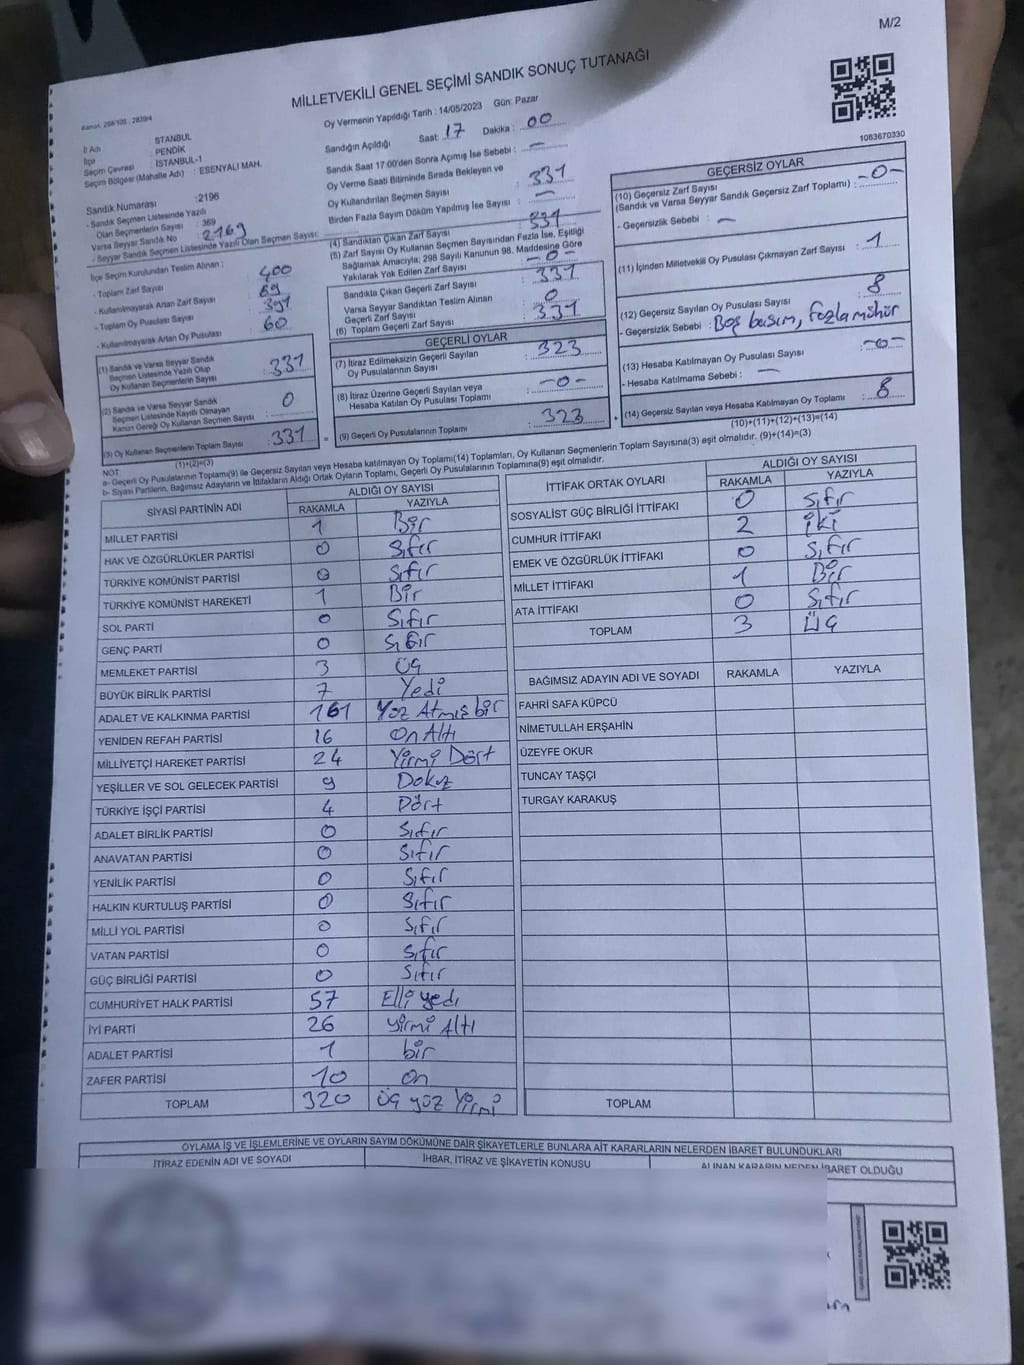 M/2
MİLLETVEKİLİ GENEL SEÇİMİ SANDIK SONUÇ TUTANAĞI
Oy Vermenin Yapıldığı Tarih : 14/05/2023 Gün: Pazar
1083670330
İl Adı : İSTANBUL
İlçe : PENDİK
Seçim Çevresi : İSTANBUL-1
Seçim Bölgesi (Mahalle Adı) : ESENYALI MAH.
Sandık Numarası :2196
- Sandık Seçmen Listesinde Yazılı
Olan Seçmenlerin Sayısı : 369
Varsa Seyyar Sandık No : 2169
- Seyyar Sandık Seçmen Listesinde Yazılı Olan Seçmen Sayısı:
Sandığın Açıldığı Saat: 17 Dakika : 00
Sandık Saat 17:00'den Sonra Açmış İse Sebebi : —
Oy Verme Saati Bitiminde Sırada Bekleyen ve
Oy Kullandırılan Seçmen Sayısı : 331
Birden Fazla Sayım Döküm Yapılmış İse Sayısı : —
İlçe Seçim Kurulundan Teslim Alınan :
- Toplam Zarf Sayısı : 400
- Kullanılmayarak Artan Zarf Sayısı : 69
- Toplam Oy Pusulası Sayısı : 391
- Kullanılmayarak Artan Oy Pusulası : 60
(1) Sandık ve Varsa Seyyar Sandık
Seçmen Listesinde Yazılı Olup
Oy Kullanan Seçmenlerin Sayısı : 331
(2) Sandık ve Varsa Seyyar Sandık
Seçmen Listesinde Kayıtlı Olmayan
Kanun Gereği Oy Kullanan Seçmen Sayısı : 0
(3) Oy Kullanan Seçmenlerin Toplam Sayısı : 331
(1)+(2)=(3)
(4) Sandıktan Çıkan Zarf Sayısı : 331
(5) Zarf Sayısı Oy Kullanan Seçmen Sayısından Fazla İse, Eşitliği
Sağlamak Amacıyla; 298 Sayılı Kanunun 98. Maddesine Göre
Yakılarak Yok Edilen Zarf Sayısı : -0-
Sandıkta Çıkan Geçerli Zarf Sayısı : 331
Varsa Seyyar Sandıktan Teslim Alınan
Geçerli Zarf Sayısı : 0
(6) Toplam Geçerli Zarf Sayısı : 331
GEÇERLİ OYLAR
(7) İtiraz Edilmeksizin Geçerli Sayılan
Oy Pusulalarının Sayısı : 323
(8) İtiraz Üzerine Geçerli Sayılan veya
Hesaba Katılan Oy Pusulası Toplamı : -0-
(9) Geçerli Oy Pusulalarının Toplamı : 323
GEÇERSİZ OYLAR
(10) Geçersiz Zarf Sayısı
(Sandık ve Varsa Seyyar Sandık Geçersiz Zarf Toplamı) : -0-
- Geçersizlik Sebebi : —
(11) İçinden Milletvekili Oy Pusulası Çıkmayan Zarf Sayısı : 1
(12) Geçersiz Sayılan Oy Pusulası Sayısı : 8
- Geçersizlik Sebebi : Boş basım, fazla mühür
(13) Hesaba Katılmayan Oy Pusulası Sayısı : -0-
- Hesaba Katılmama Sebebi : —
(14) Geçersiz Sayılan veya Hesaba Katılmayan Oy Toplamı : 8
(10)+(11)+(12)+(13)=(14)
NOT:
a- Geçerli Oy Pusulalarının Toplamı(9) ile Geçersiz Sayılan veya Hesaba katılmayan Oy Toplamı(14) Toplamları, Oy Kullanan Seçmenlerin Toplam Sayısına(3) eşit olmalıdır. (9)+(14)=(3)
b- Siyasi Partilerin, Bağımsız Adayların ve İttifakların Aldığı Ortak Oyların Toplamı, Geçerli Oy Pusulalarının Toplamına(9) eşit olmalıdır.
SİYASİ PARTİNİN ADI ALDIĞI OY SAYISI
RAKAMLA YAZIYLA
MİLLET PARTİSİ 1 Bir
HAK VE ÖZGÜRLÜKLER PARTİSİ 0 Sıfır
TÜRKİYE KOMÜNİST PARTİSİ 0 Sıfır
TÜRKİYE KOMÜNİST HAREKETİ 1 Bir
SOL PARTİ 0 Sıfır
GENÇ PARTİ 0 Sıfır
MEMLEKET PARTİSİ 3 Üç
BÜYÜK BİRLİK PARTİSİ 7 Yedi
ADALET VE KALKINMA PARTİSİ 161 Yüz Atmış bir
YENİDEN REFAH PARTİSİ 16 On Altı
MİLLİYETÇİ HAREKET PARTİSİ 24 Yirmi Dört
YEŞİLLER VE SOL GELECEK PARTİSİ 9 Dokuz
TÜRKİYE İŞÇİ PARTİSİ 4 Dört
ADALET BİRLİK PARTİSİ 0 Sıfır
ANAVATAN PARTİSİ 0 Sıfır
YENİLİK PARTİSİ 0 Sıfır
HALKIN KURTULUŞ PARTİSİ 0 Sıfır
MİLLİ YOL PARTİSİ 0 Sıfır
VATAN PARTİSİ 0 Sıfır
GÜÇ BİRLİĞİ PARTİSİ 0 Sıfır
CUMHURİYET HALK PARTİSİ 57 Elli yedi
İYİ PARTİ 26 yirmi Altı
ADALET PARTİSİ 1 bir
ZAFER PARTİSİ 10 On
TOPLAM 320 Üç yüz Yirmi
İTTİFAK ORTAK OYLARI ALDIĞI OY SAYISI
RAKAMLA YAZIYLA
SOSYALİST GÜÇ BİRLİĞİ İTTİFAKI 0 Sıfır
CUMHUR İTTİFAKI 2 iki
EMEK VE ÖZGÜRLÜK İTTİFAKI 0 Sıfır
MİLLET İTTİFAKI 1 Bir
ATA İTTİFAKI 0 Sıfır
TOPLAM 3 Üç
BAĞIMSIZ ADAYIN ADI VE SOYADI RAKAMLA YAZIYLA
FAHRİ SAFA KÜPCÜ
NİMETULLAH ERŞAHİN
ÜZEYFE OKUR
TUNCAY TAŞÇI
TURGAY KARAKUŞ
TOPLAM
OYLAMA İŞ VE İŞLEMLERİNE VE OYLARIN SAYIM DÖKÜMÜNE DAİR ŞİKAYETLERLE BUNLARA AİT KARARLARIN NELERDEN İBARET BULUNDUKLARI
İTİRAZ EDENİN ADI VE SOYADI İHBAR, İTİRAZ VE ŞİKAYETİN KONUSU ALINAN KARARIN NEDEN İBARET OLDUĞU